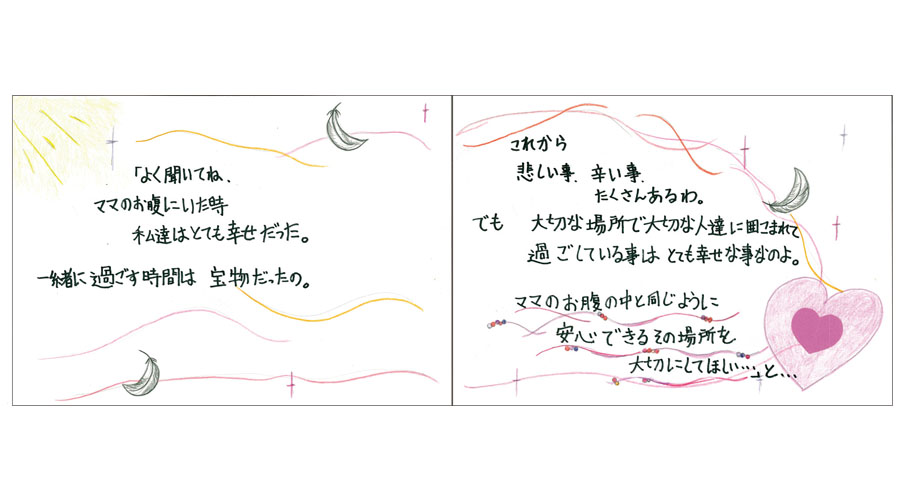 「よく聞いてね、
ママのお腹にいた時
私達はとても幸せだった。
一緒に過ごす時間は 宝物だったの。
これから
悲しい事、辛い事、
たくさんあるわ。
でも 大切な場所で大切な人達に囲まれて
過ごしている事は とても幸せな事なのよ。
ママのお腹の中と同じように
安心できるその場所を
大切にしてほしい…」と…